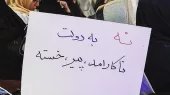 نه به دولت
ناکارآمد، پیر، خسته